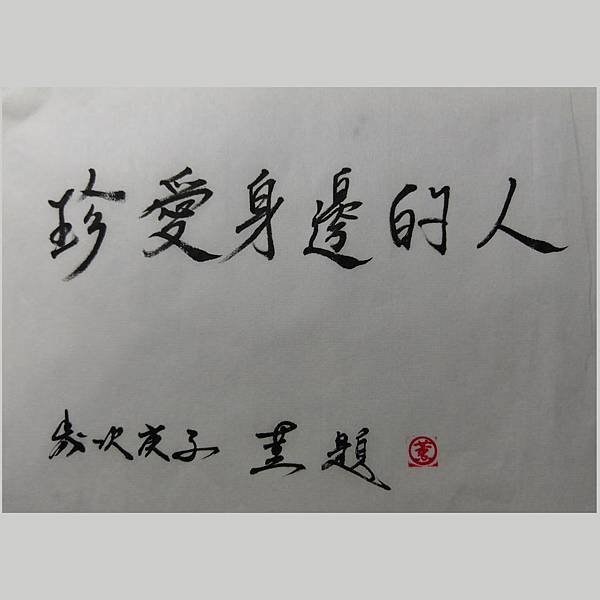 珍愛身邊的人
歲次庚子 題